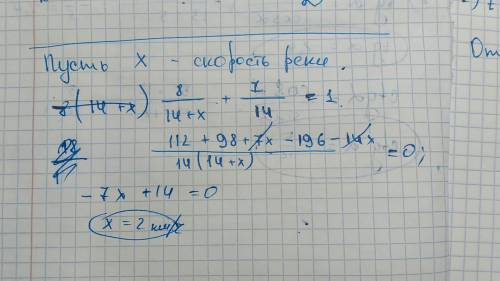 Пусть x - скорость реки.
8(14+x) 8/(14+x) + 7/14 = 1
(112 + 98 + 7x - 196 - 14x)/(14(14+x)) = 0;
-7x + 14 = 0
x = 2 км/ч
От